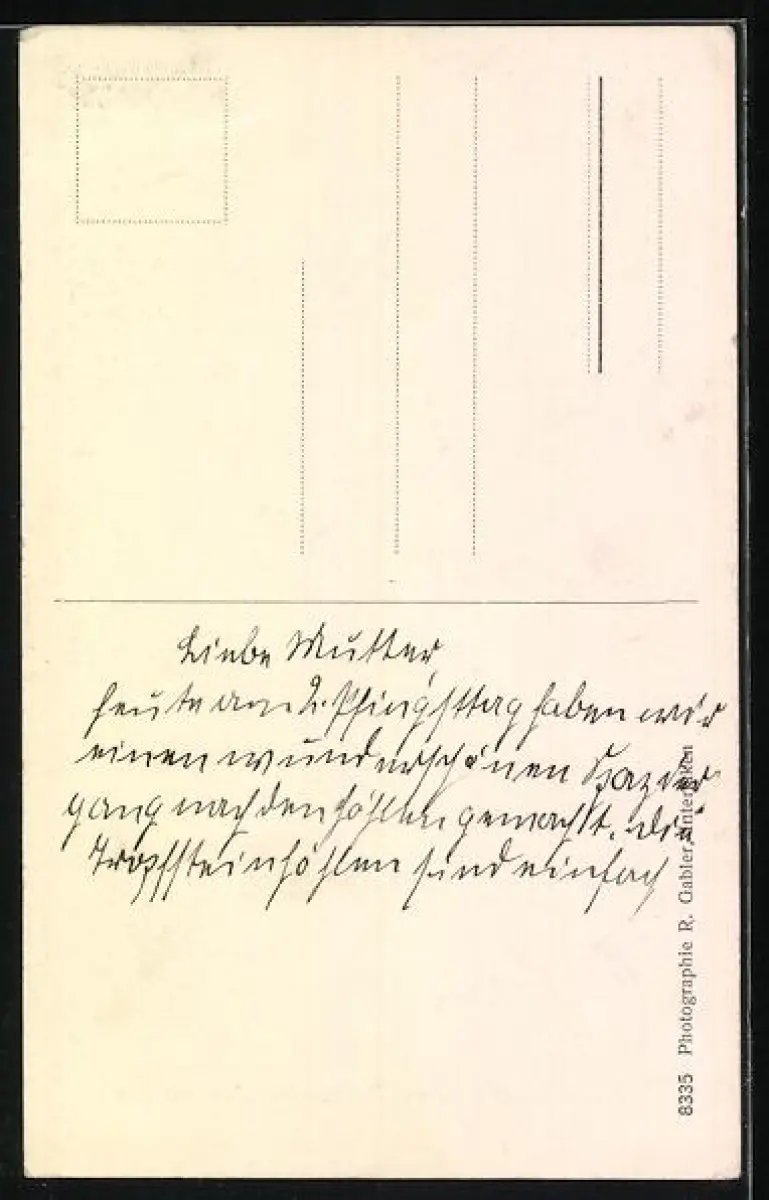 Liebe Mutter,
heute am 2. Pfingsttag haben wir
einen wunderschönen Spazier
gang nach den Höhlen gemacht. Die
Tropfsteinhöhlen sind einfach
8335 Photographie R. Gabler, Interlaken